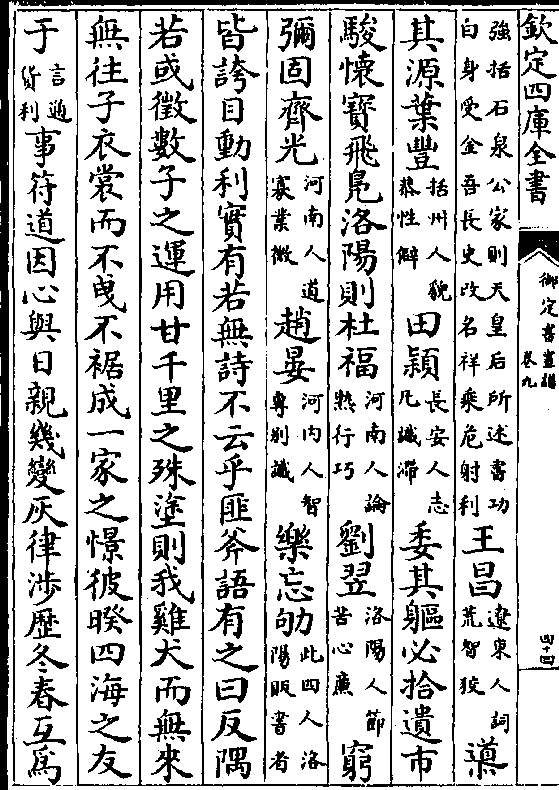 欽定四庫全書
御定書畫譜 卷九
四十四
强括石泉公家則天皇后所述書功白身受金吾長史改名祥乘危射利王昌遼東人詞荒智狡導
其源葉豐括州人貌恭性僻田穎長安人志凡識滯委其軀必拾遺市
駿懷寶飛鳧洛陽則杜福河南人論熟行巧劉翌洛陽人節苦心廉窮
彌固齊光河南人道寡業微趙晏河內人智專別識樂忘劬此四人洛陽販書者
皆誇目動利實有若無詩不云乎匪斧語有之曰反隅
若或徵數子之運用甘千里之殊塗則我雞犬而無來
無往子衣裳而不曳不裾成一家之憬彼暌四海之友
于言遁貨利事符道因心與日親幾變灰律涉歷冬春互為